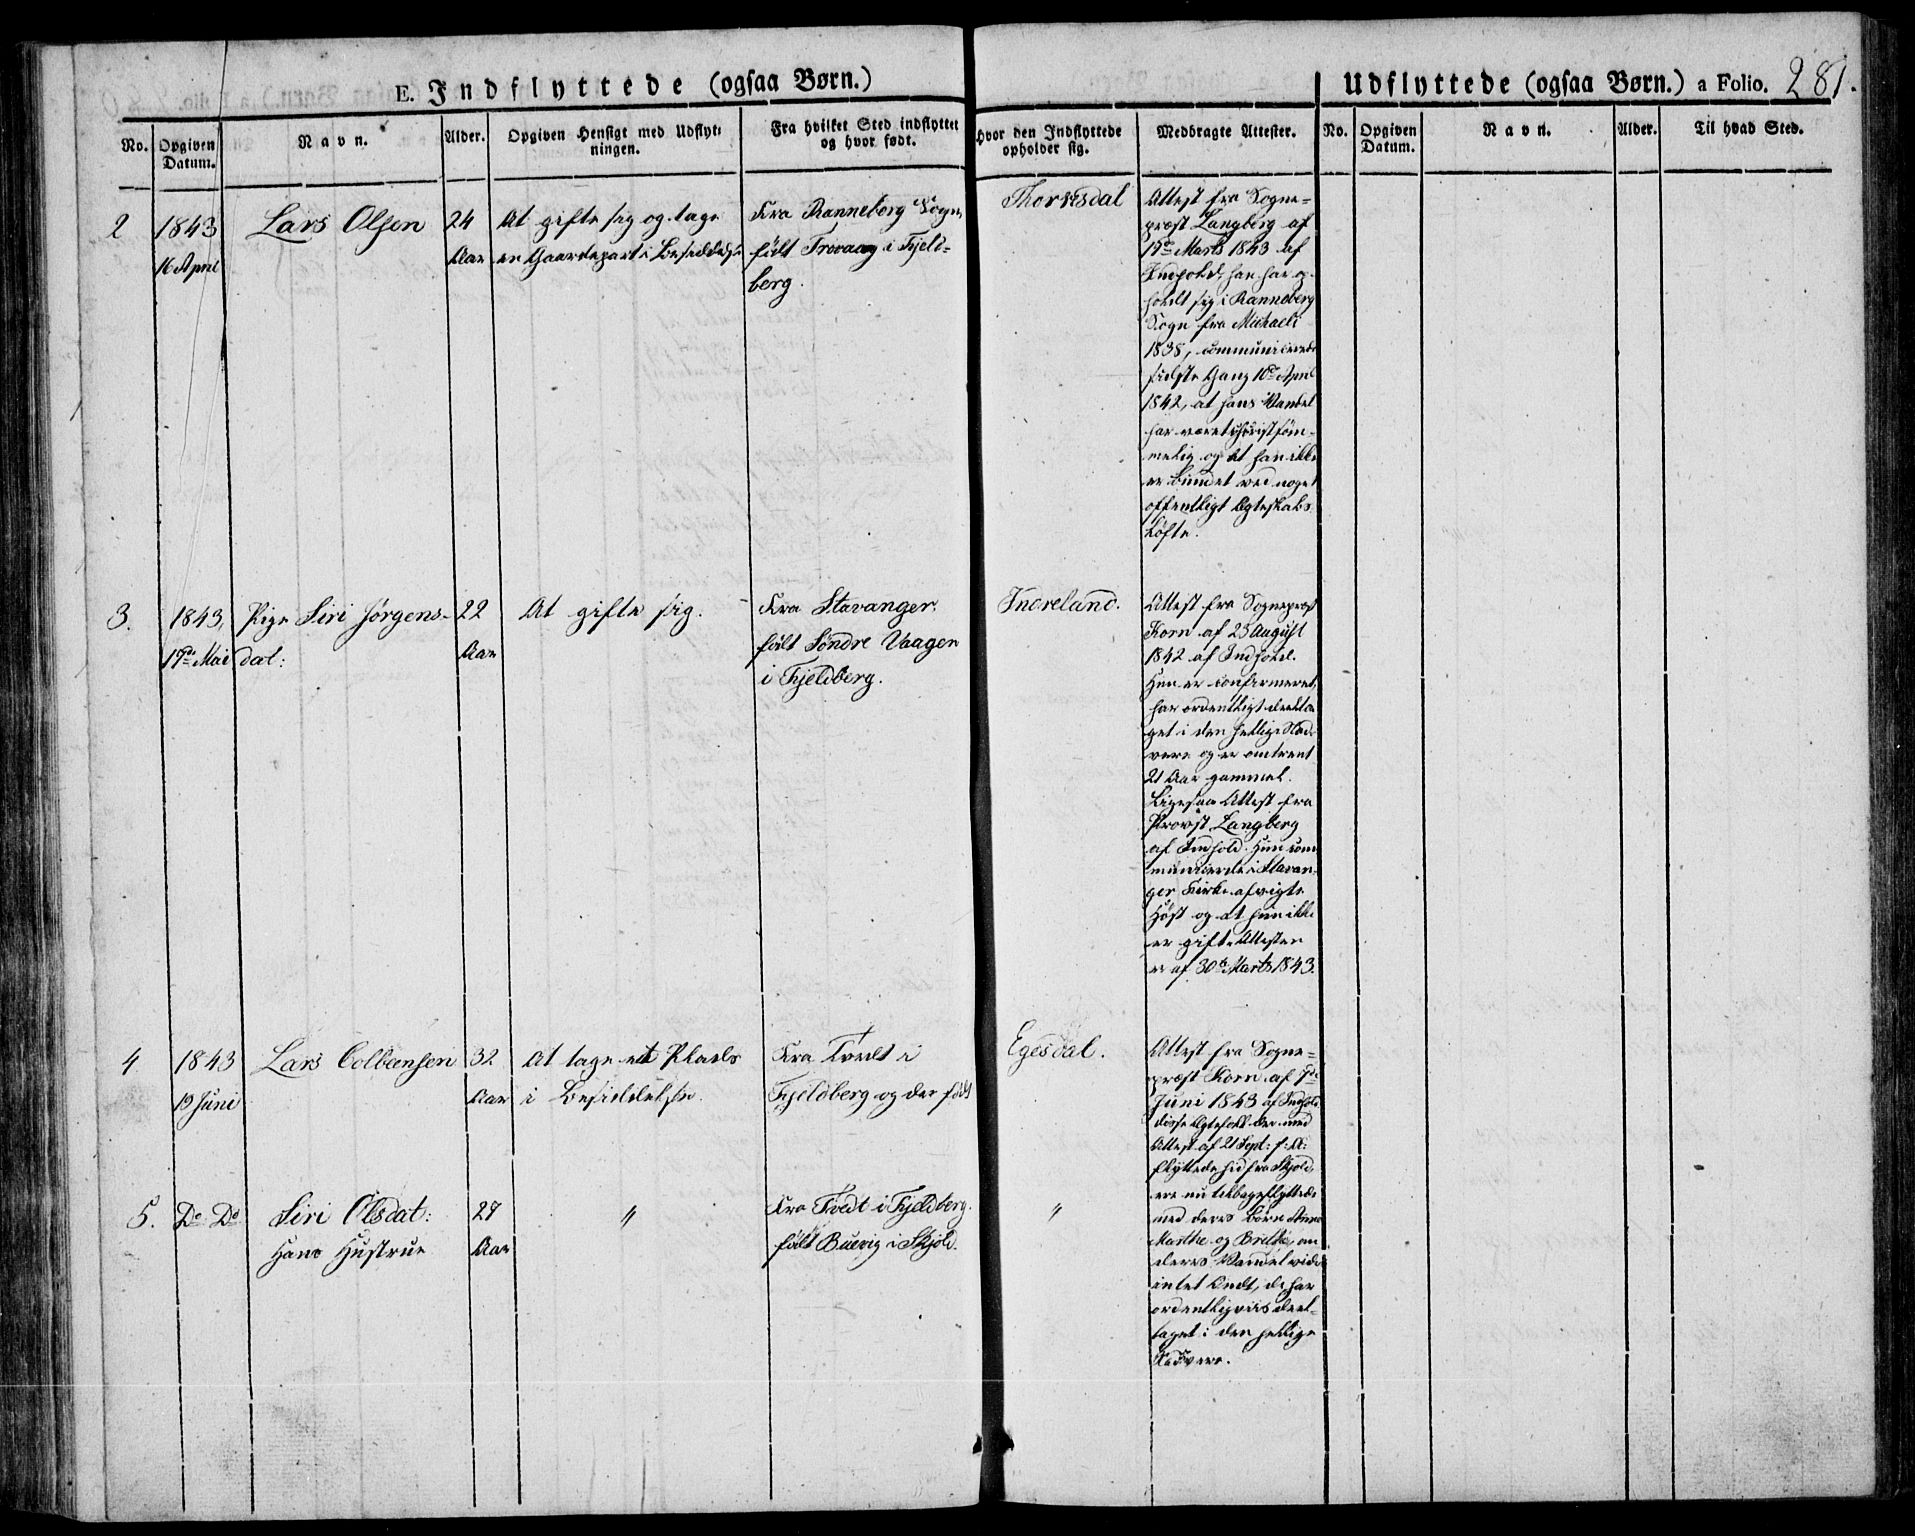 E. Indflyttede (ogsaa Børn.)
Udflyttede (ogsaa Børn.) a Folio. 281.
No. Opgiven Datum. Navn. Alder. Opgiven Hensigt med Udflytningen. Fra hvilket Sted indflyttet og hvor født. Hvor den Indflyttede opholder sig. Medbragte Attester. No. Opgiven Datum. Navn. Alder. Til hvad Sted.
2
1843
16 April
Lars Olsen
24
Aar
At gifte sig og tage
en Gaardepart i Besiddelse
Fra Ranneberg Sogn,
født Trovaag i Fjeld-
berg.
Attest fra Sogne-
præst Langberg af
Marts 1843 af
Indhold, han har op-
holdt sig i Ranneberg
Sogn fra Michaeli
1838, communicerede
sidste Gang 10de April
1842, at hans Vandel
har været christsøm-
melig og at han ikke
er bundet ved noget
offentligt Egteskabs
Løfte.
3.
1843,
17de Mai
Pige Siri Jørgens-
dat:
22
Aar
At gifte sig.
Fra Stavanger.
født Søndre Vaagen
i Fjeldberg.
Indreland.
Attest fra Sognepræst
Korn af 25 August
1842 af Indhold.
Hun er confirmeret,
har ordentligt deelta
get i den hellige Nad-
vere og er omtrent
21 Aar gammel.
Ligesaa Attest fra
Provst Langberg
af Indhold. Hun com
municerede i Stavan-
ger Kirke afvigte
Høst og at hun ikke
er gift. Attesten
er af 30te Marts 1843.
4
1843
19 Juni
Lars Colbensen
32
Aar
At tage et Plads
i Besiddelse.
Fra Tvedt i
Fjeldberg og der født
Egesdal.
Attest fra Sogne-
præst Korn af
Juni 1843 af Indhold
disse Egtefolk der med
Attest af 21 Sept: f: A:
flyttede hid fra Skjold,
ere nu tilbageflyttede
med deres Børn Anne
Marthe og Brethe, om
deres Vandel vides
intet Ondt, de har
ordentligviis deel-
taget i den hellige
Nadvere.
5.
Do Do
Siri Olsdat:
Hans Hustrue
27
Aar
"
Fra Tvedt i Fjeldberg.
født Buevig i Skjold.
"